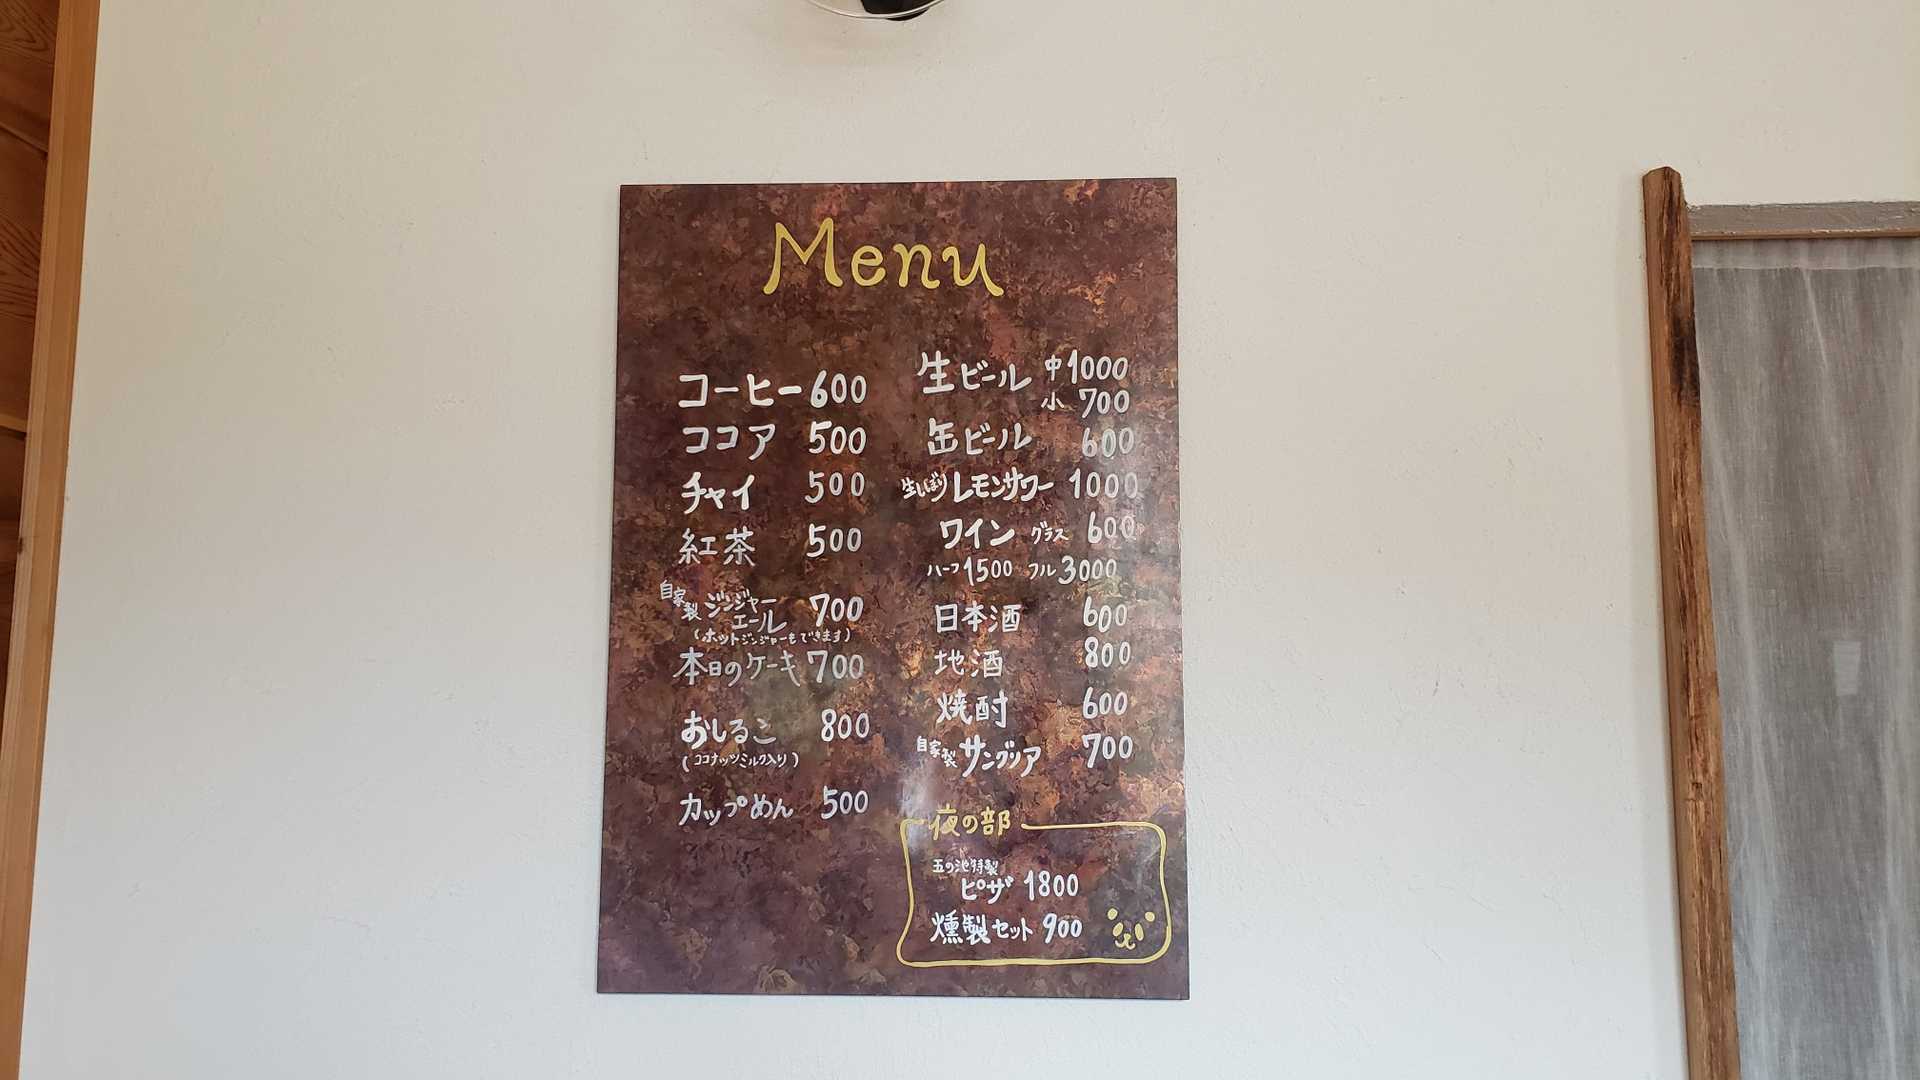 Menu
コーヒー 600
ココア 500
チャイ 500
紅茶 500
自家製 ジンジャー
エール 700
(ホットジンジャーもできます)
本日のケーキ 700
おしるこ 800
(ココナッツミルク入り)
カップめん 500
生ビール 中 1000
小 700
缶ビール 600
生しぼり レモンサワー 1000
ワイン グラス 600
ハーフ 1500 フル 3000
日本酒 600
地酒 800
焼酎 600
自家製 サングリア 700
夜の部
五の池特製
ピザ 1800
燻製セット 900